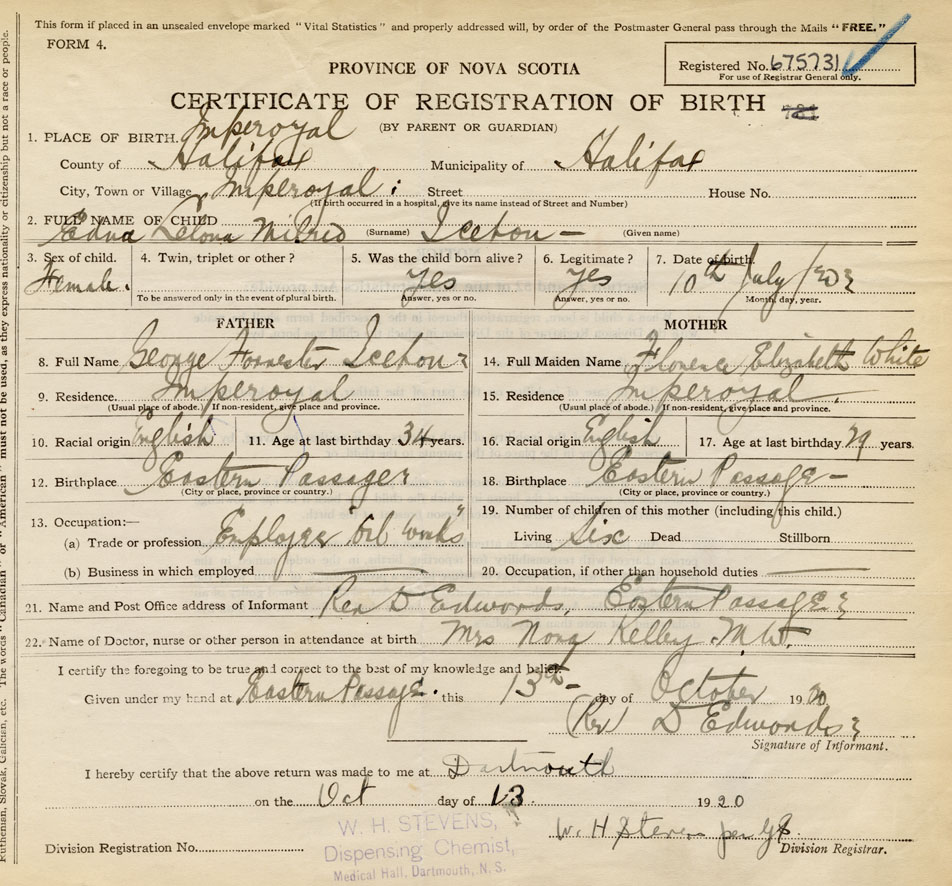 This form if placed in an unsealed envelope marked "Vital Statistics" and properly addressed will, by order of the Postmaster General pass through the Mails "FREE."
FORM 4.
Registered No. 675731
For use of Registrar General only.
PROVINCE OF NOVA SCOTIA
CERTIFICATE OF REGISTRATION OF BIRTH
(BY PARENT OR GUARDIAN)
1. PLACE OF BIRTH. Imperoyal
County of Halifax Municipality of Halifax
City, Town or Village Imperoyal Street House No.
(If birth occurred in a hospital, give its name instead of Street and Number)
2. FULL NAME OF CHILD
Edna Mildred (Surname) (Given name)
3. Sex of child. 4. Twin, triplet or other? 5. Was the child born alive? 6. Legitimate? 7. Date of birth.
Female. Yes Yes 10th July
To be answered only in the event of plural birth. Answer, yes or no. Answer, yes or no. Month, day, year.
FATHER
8. Full Name George Forrester
9. Residence. Imperoyal
(Usual place of abode.) If non-resident, give place and province.
10. Racial origin English 11. Age at last birthday 34 years.
12. Birthplace Eastern Passage
(City or place, province or country.)
13. Occupation:—
(a) Trade or profession. Employee "Oil works"
(b) Business in which employed
MOTHER
14. Full Maiden Name Florence Elizabeth White
15. Residence Imperoyal.
(Usual place of abode.) If non-resident, give place and province.
16. Racial origin English 17. Age at last birthday 29 years.
18. Birthplace Eastern Passage
(City or place, province or country.)
19. Number of children of this mother (including this child.)
Living Six Dead Stillborn
20. Occupation, if other than household duties
21. Name and Post Office address of Informant Rev D Edwards, Eastern Passage
22. Name of Doctor, nurse or other person in attendance at birth Mrs Nona Kelley M.W.
I certify the foregoing to be true and correct to the best of my knowledge and belief.
Given under my hand at Eastern Passage. this 13th day of October 1920
Rev D Edwards
Signature of Informant.
I hereby certify that the above return was made to me at Dartmouth
on the Oct day of 13. 1920
W. H Stevens per
Division Registrar.
Division Registration No.
W. H. STEVENS,
Dispensing Chemist,
Medical Hall, Dartmouth, N. S.
Ruthenian, Slovak, Galician, etc. The words "Canadian" or "American" must not be used, as they express nationality or citizenship but not a race or people.